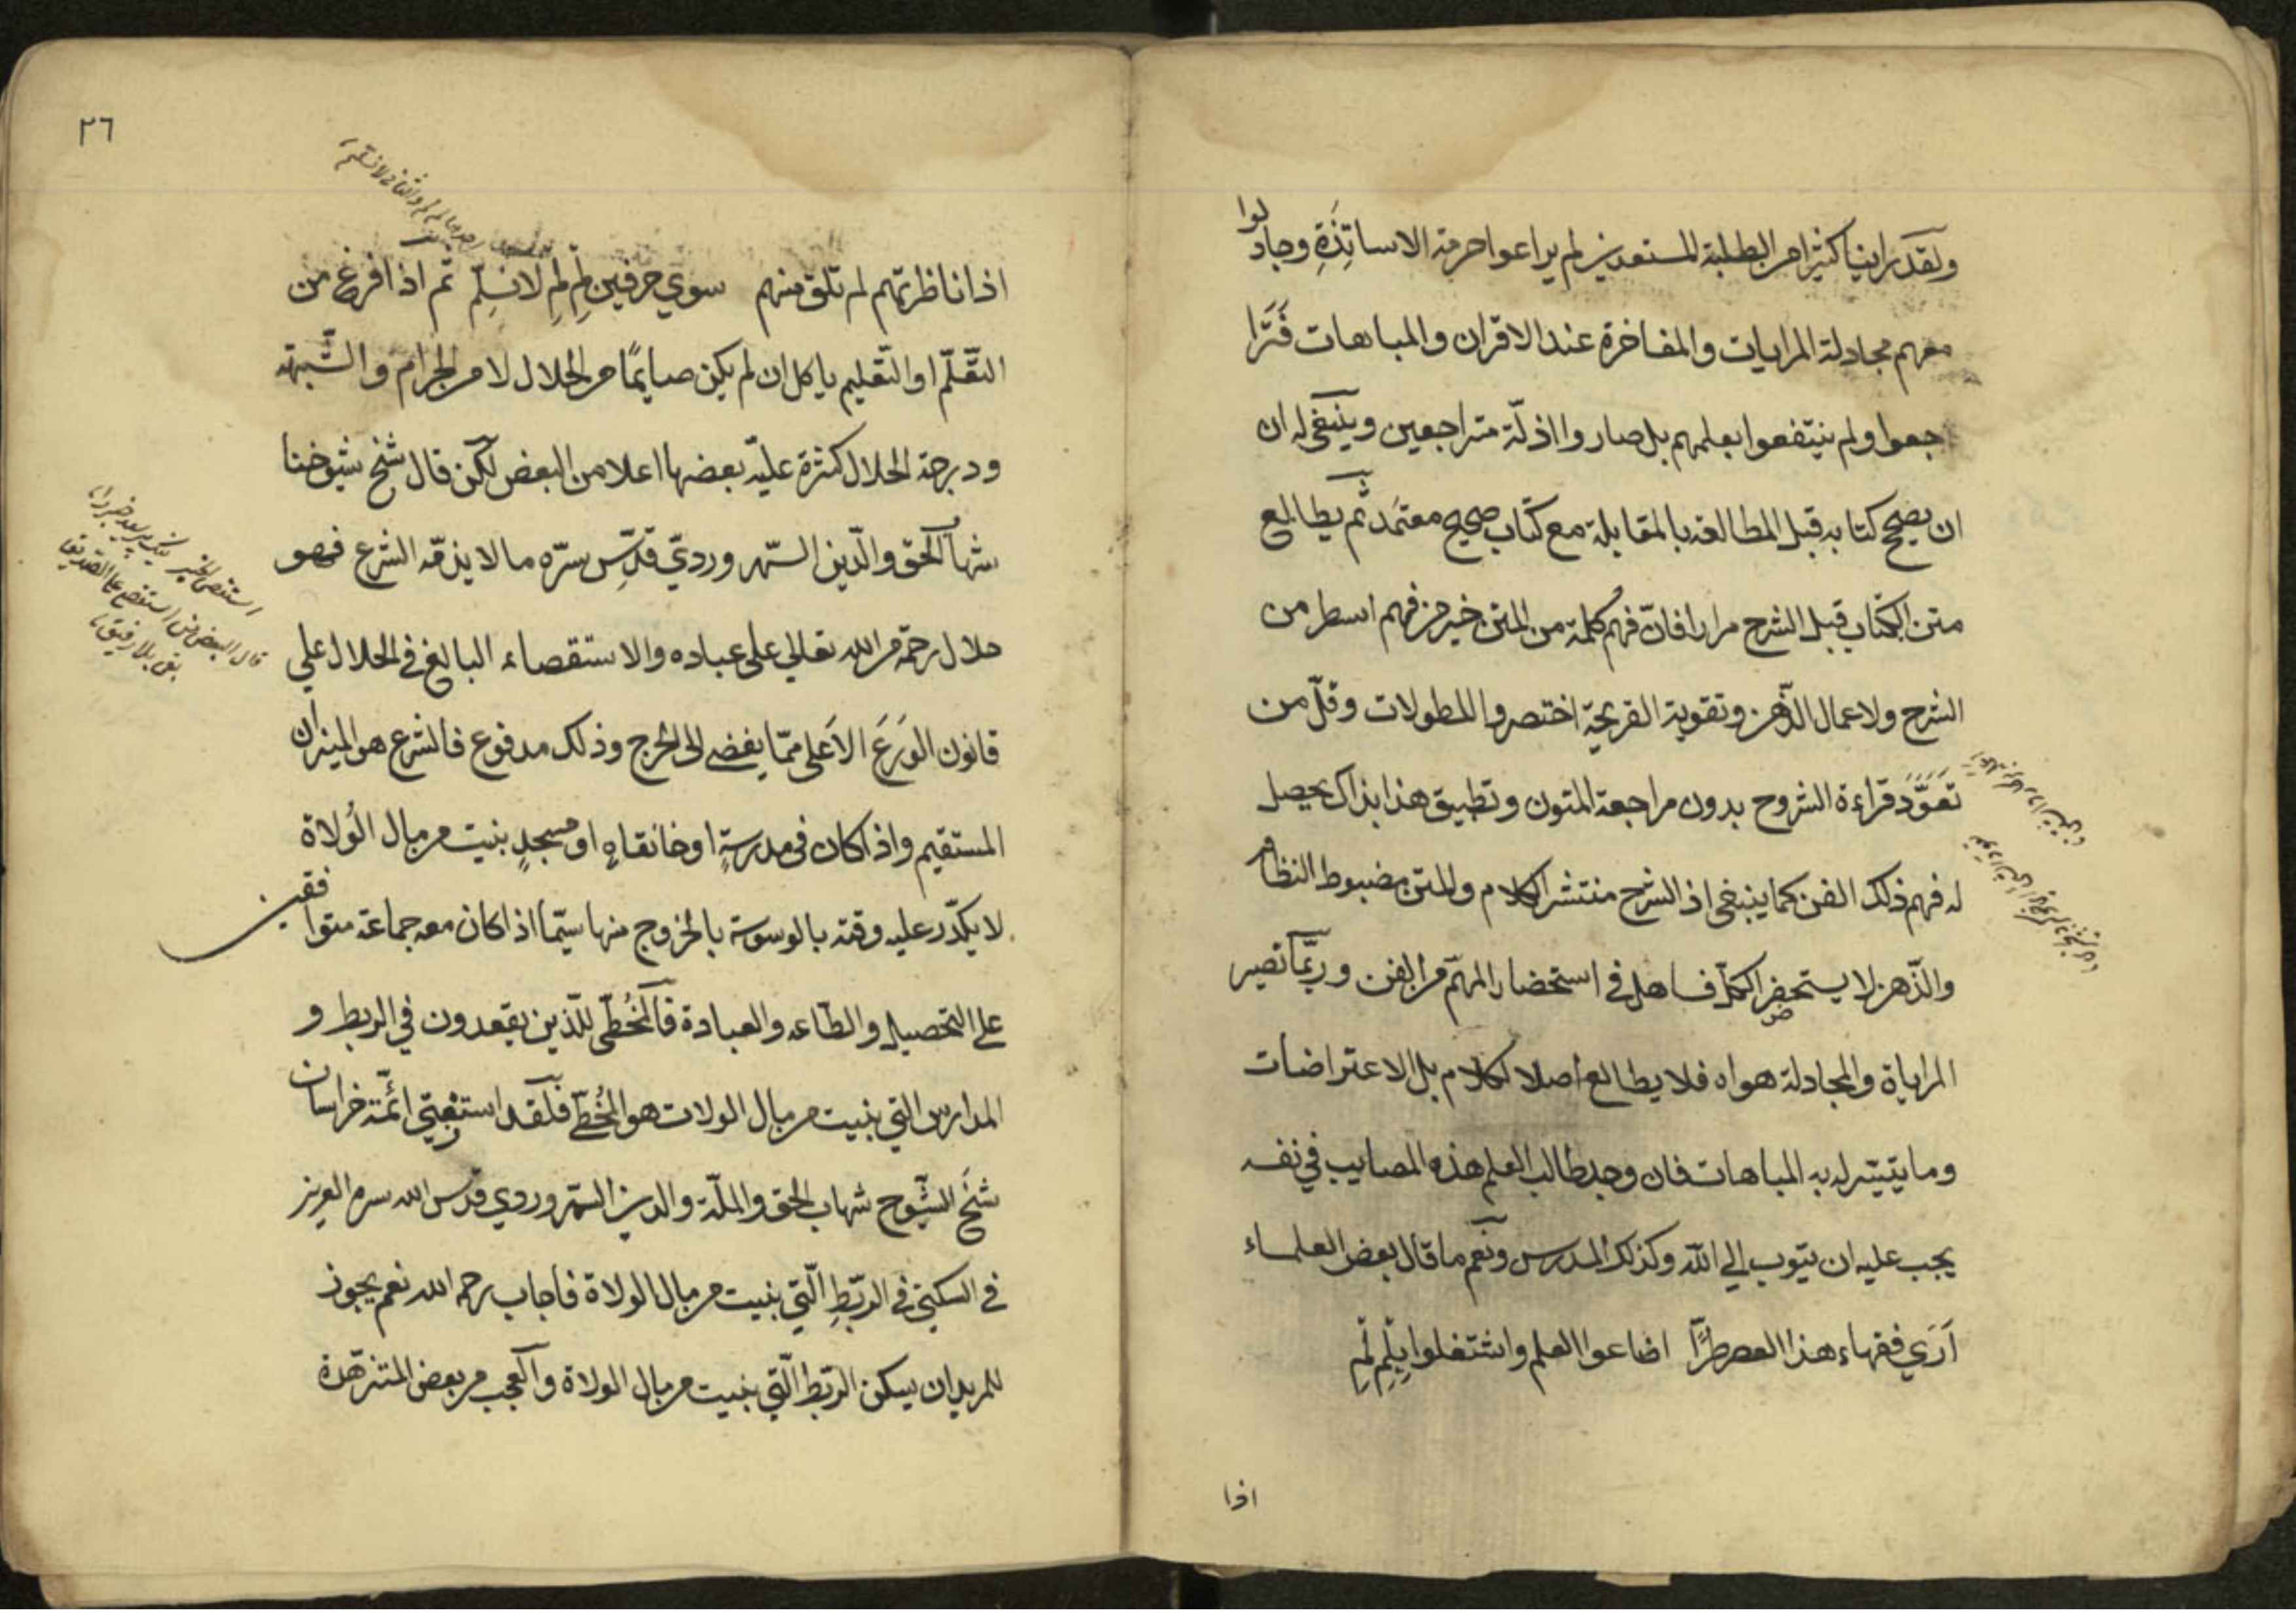 ولقد راينا كثيرا من الطلبة المستعدين لم يراعوا حرمة الاساتذة وجادلوا
معهم مجادلة المرايات والمفاخرة عند الاقران والمباهات فترا
جعوا ولم ينتفعوا بعلمهم بل صاروا اذلّة متراجعين وينبغي له ان
ان يصحح كتابه قبل المطالعة بالمقابلة مع كتاب صحيح معتمد ثم يطالع
متن الكتاب قبل الشرح مرارا فانّ فهم كلمة من المتن خير من فهم اسطر من
الشرح ولاعمال الذّهن وتقوية القريحة اختصروا المطولات وقلّ من
تعوّد قراءة الشروح بدون مراجعة المتون وتطبيق هذا بذاك يحصل
له فهم ذلك الفن كما ينبغي اذ الشرح منتشر الكلام والمتن مضبوط النظام
والذّهن لا يستحضر الكلّ فساهل في استحضار المهمّ من الفن وربّما تصير
المراياة والمجادلة هواه فلا يطالع اصلا لكلام بل الاعتراضات
وما يتيسّر له به المباهات فان وجد طالب العلم هذه المصايب في نفسه
يجب عليه ان يتوب الي الله وكذلك المدرس ونعم ما قال بعض العلماء
اَرَي فقهاء هذا العصر طرًّا اضاعوا العلم واشتغلوا بِلِمْ لِمْ
اذا
٢٦
اذا ناظرتهم لم تلق منهم سوي حرفين لِمْ لِمْ لا نسلِّم ثم اذا فرغ من
التّعلّم او التّعليم ياكل ان لم يكن صايمًا من الحلال لا من الحرام والشّبهة
ودرجة الحلال كثرة عليّه بعضها اعلا من البعض لكن قال شيخ شيوخنا
شهاب الحق والدّين السّهروردي قدّس سرّه ما لا يذمّه الشرع فهو
حلال رحمة من الله تعالي على عباده والاستقصاء البالغ في الحلال علي
قانون الورَع الاَعلى ممّا يفضى الى الحرج وذلك مدفوع فالشرع هو الميزان
المستقيم واذا كان في مدرسةٍ او خانقاهٍ او مسجدٍ بنيت من مال الوُلاة
لا يكدّر عليه وقته بالوسوسة بالخروج منها سيّما اذا كان معه جماعة متوافقين
على التحصيل والطّاعه والعبادة فالمُخطّى للّذين يقعدون في الربط و
المدارس التي بنيت من مال الولات هو المُخطّى فلقد استفتي ائمّة خراسان
شيخ الشّيوخ شهاب الحق والملّة والدين السّهروردي قدّس الله سره العزيز
في السكنى في الرّبطِ الّتي بنيت من مال الولاة فاجاب رحمه الله نعم يجوز
للمريد ان يسكن الرّبط الّتي بنيت من مال الولاة والعجب من بعض المتنزّهدة